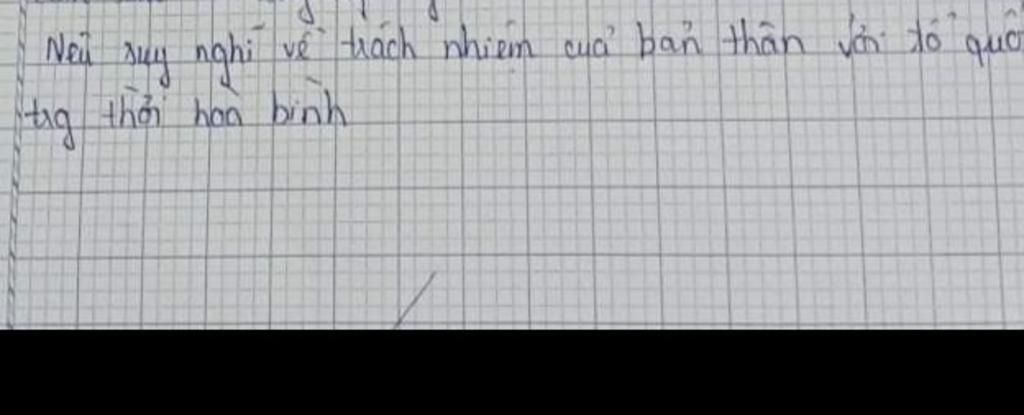 Nêu suy nghĩ về trách nhiệm của bản thân với tổ quố
trg thời hoà bình